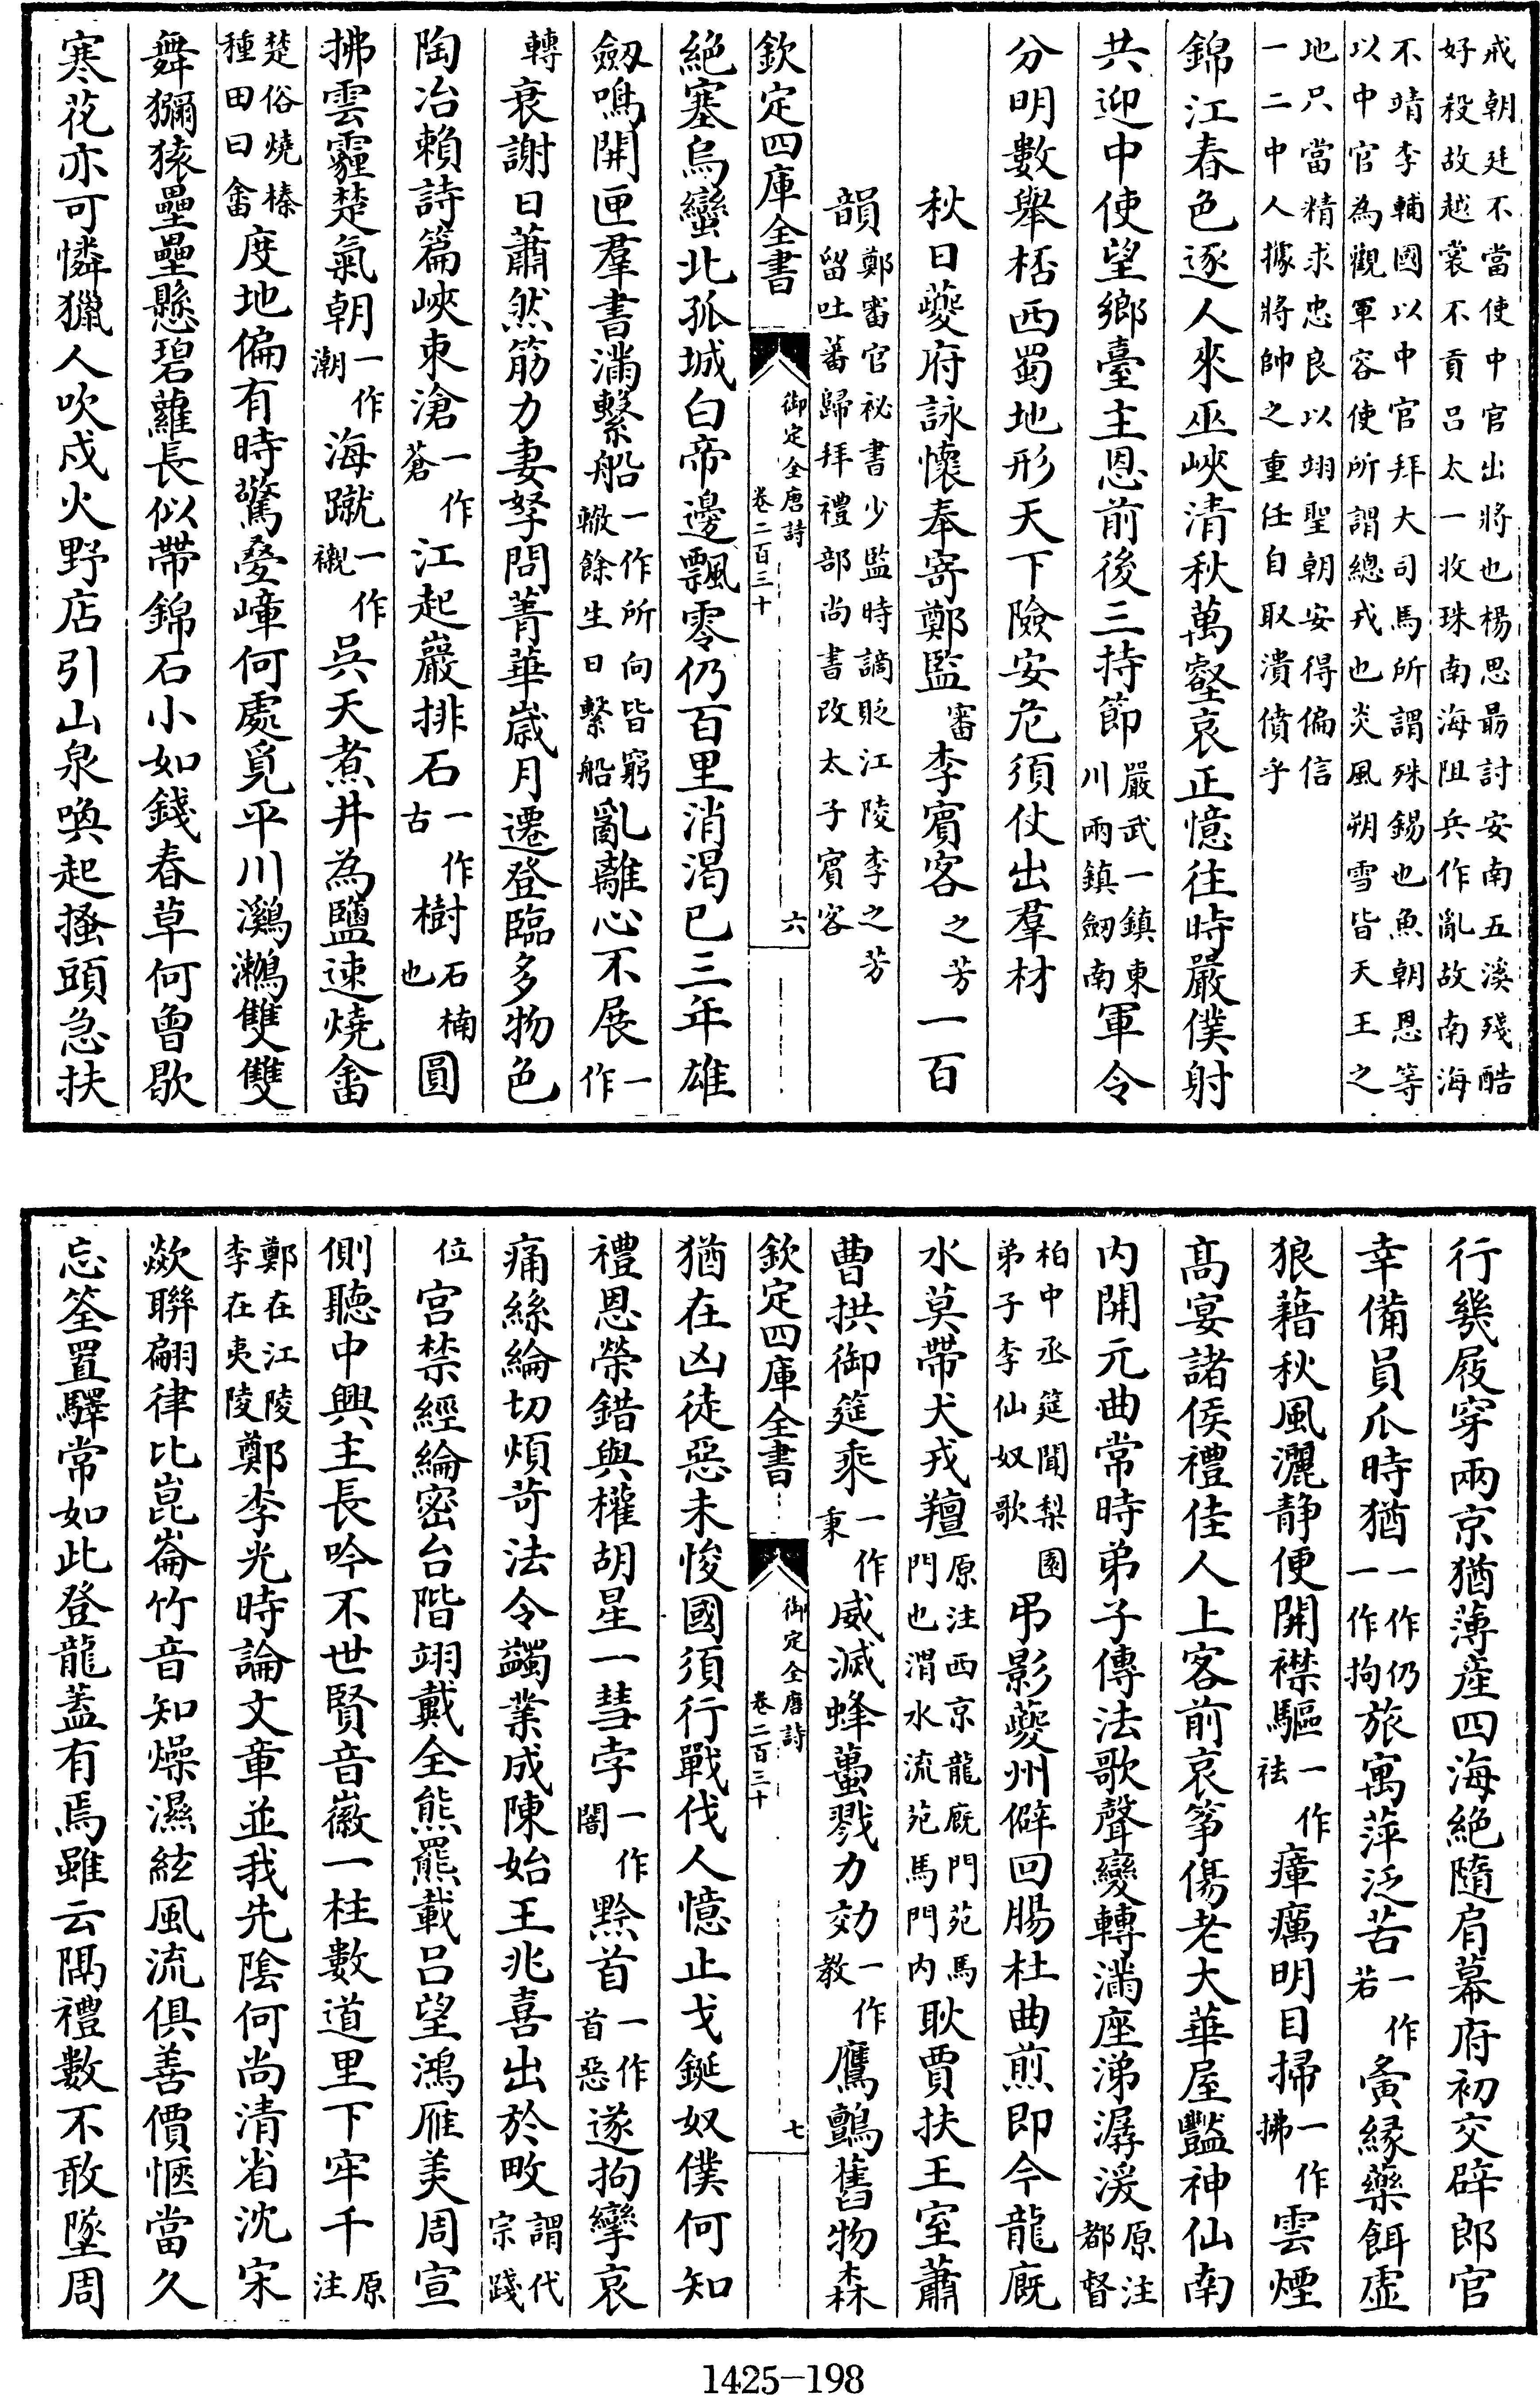 戒朝廷不當使中官出將也楊思勗討安南五溪殘酷
好殺故越裳不貢吕太一收珠南海阻兵作亂故南海
不靖李輔國以中官拜大司馬所謂殊錫也魚朝恩等
以中官為觀軍容使所謂總戎也炎風朔雪皆天王之
地只當精求忠良以翊聖朝安得偏信
一二中人據將帥之重任自取潰僨乎
錦江春色逐人來巫峽清秋萬壑哀正憶往時嚴僕射
共迎中使望鄉臺主恩前後三持節嚴武一鎮東川兩鎮劒南軍令
分明數舉桮西蜀地形天下險安危須仗出羣材
秋日夔府詠懷奉寄鄭監審李賓客之芳一百
韻鄭審官祕書少監時謫貶江陵李之芳留吐蕃歸拜禮部尚書改太子賓客
欽定四庫全書 御定全唐詩 卷二百三十 六
絶塞烏蠻北孤城白帝邊飄零仍百里消渴已三年雄
劒鳴開匣羣書滿繫船一作所向皆窮轍餘生日繫船亂離心不展一作
轉衰謝日蕭然筋力妻孥問菁華歲月遷登臨多物色
陶冶賴詩篇峽束滄一作蒼江起巖排石一作古樹石楠也圓
拂雲霾楚氣朝一作潮海蹴一作襯吳天煮井為鹽速燒畬
楚俗燒榛種田曰畬度地偏有時驚疊嶂何處覓平川鸂鷘雙雙
舞獼猿壘壘懸碧蘿長似帶錦石小如錢春草何曾歇
寒花亦可憐獵人吹戍火野店引山泉喚起搔頭急扶
行幾屐穿兩京猶薄産四海絶隨肩幕府初交辟郎官
幸備員瓜時猶一作仍一作拘旅寓萍泛苦一作若夤緣藥餌虛
狼藉秋風灑静便開襟驅一作袪瘴癘明目掃一作拂雲煙
高宴諸侯禮佳人上客前哀箏傷老大華屋豔神仙南
内開元曲常時弟子傳法歌聲變轉滿座涕潺湲原注都督
柏中丞筵聞梨園弟子李仙奴歌弔影夔州僻回腸杜曲煎即今龍廐
水莫帶犬戎羶原注西京龍廐門苑馬門也渭水流苑馬門内耿賈扶王室蕭
曹拱御筵乘一作秉威滅蜂蠆戮力効一作教鷹鸇舊物森
欽定四庫全書 御定全唐詩 卷二百三十 七
猶在凶徒惡未悛國須行戰伐人憶止戈鋋奴僕何知
禮恩榮錯與權胡星一彗孛一作闇黔首一作首惡遂拘攣哀
痛絲綸切煩苛法令蠲業成陳始王兆喜出於畋謂代宗踐
位宮禁經綸密台階翊戴全熊羆載吕望鴻雁美周宣
側聽中興主長吟不世賢音徽一柱數道里下牢千原注
鄭在江陵李在夷陵鄭李光時論文章並我先陰何尚清省沈宋
欻聯翩律比崑崙竹音知燥濕絃風流俱善價愜當久
忘筌置驛常如此登龍蓋有焉雖云隔禮數不敢墜周
1425-198